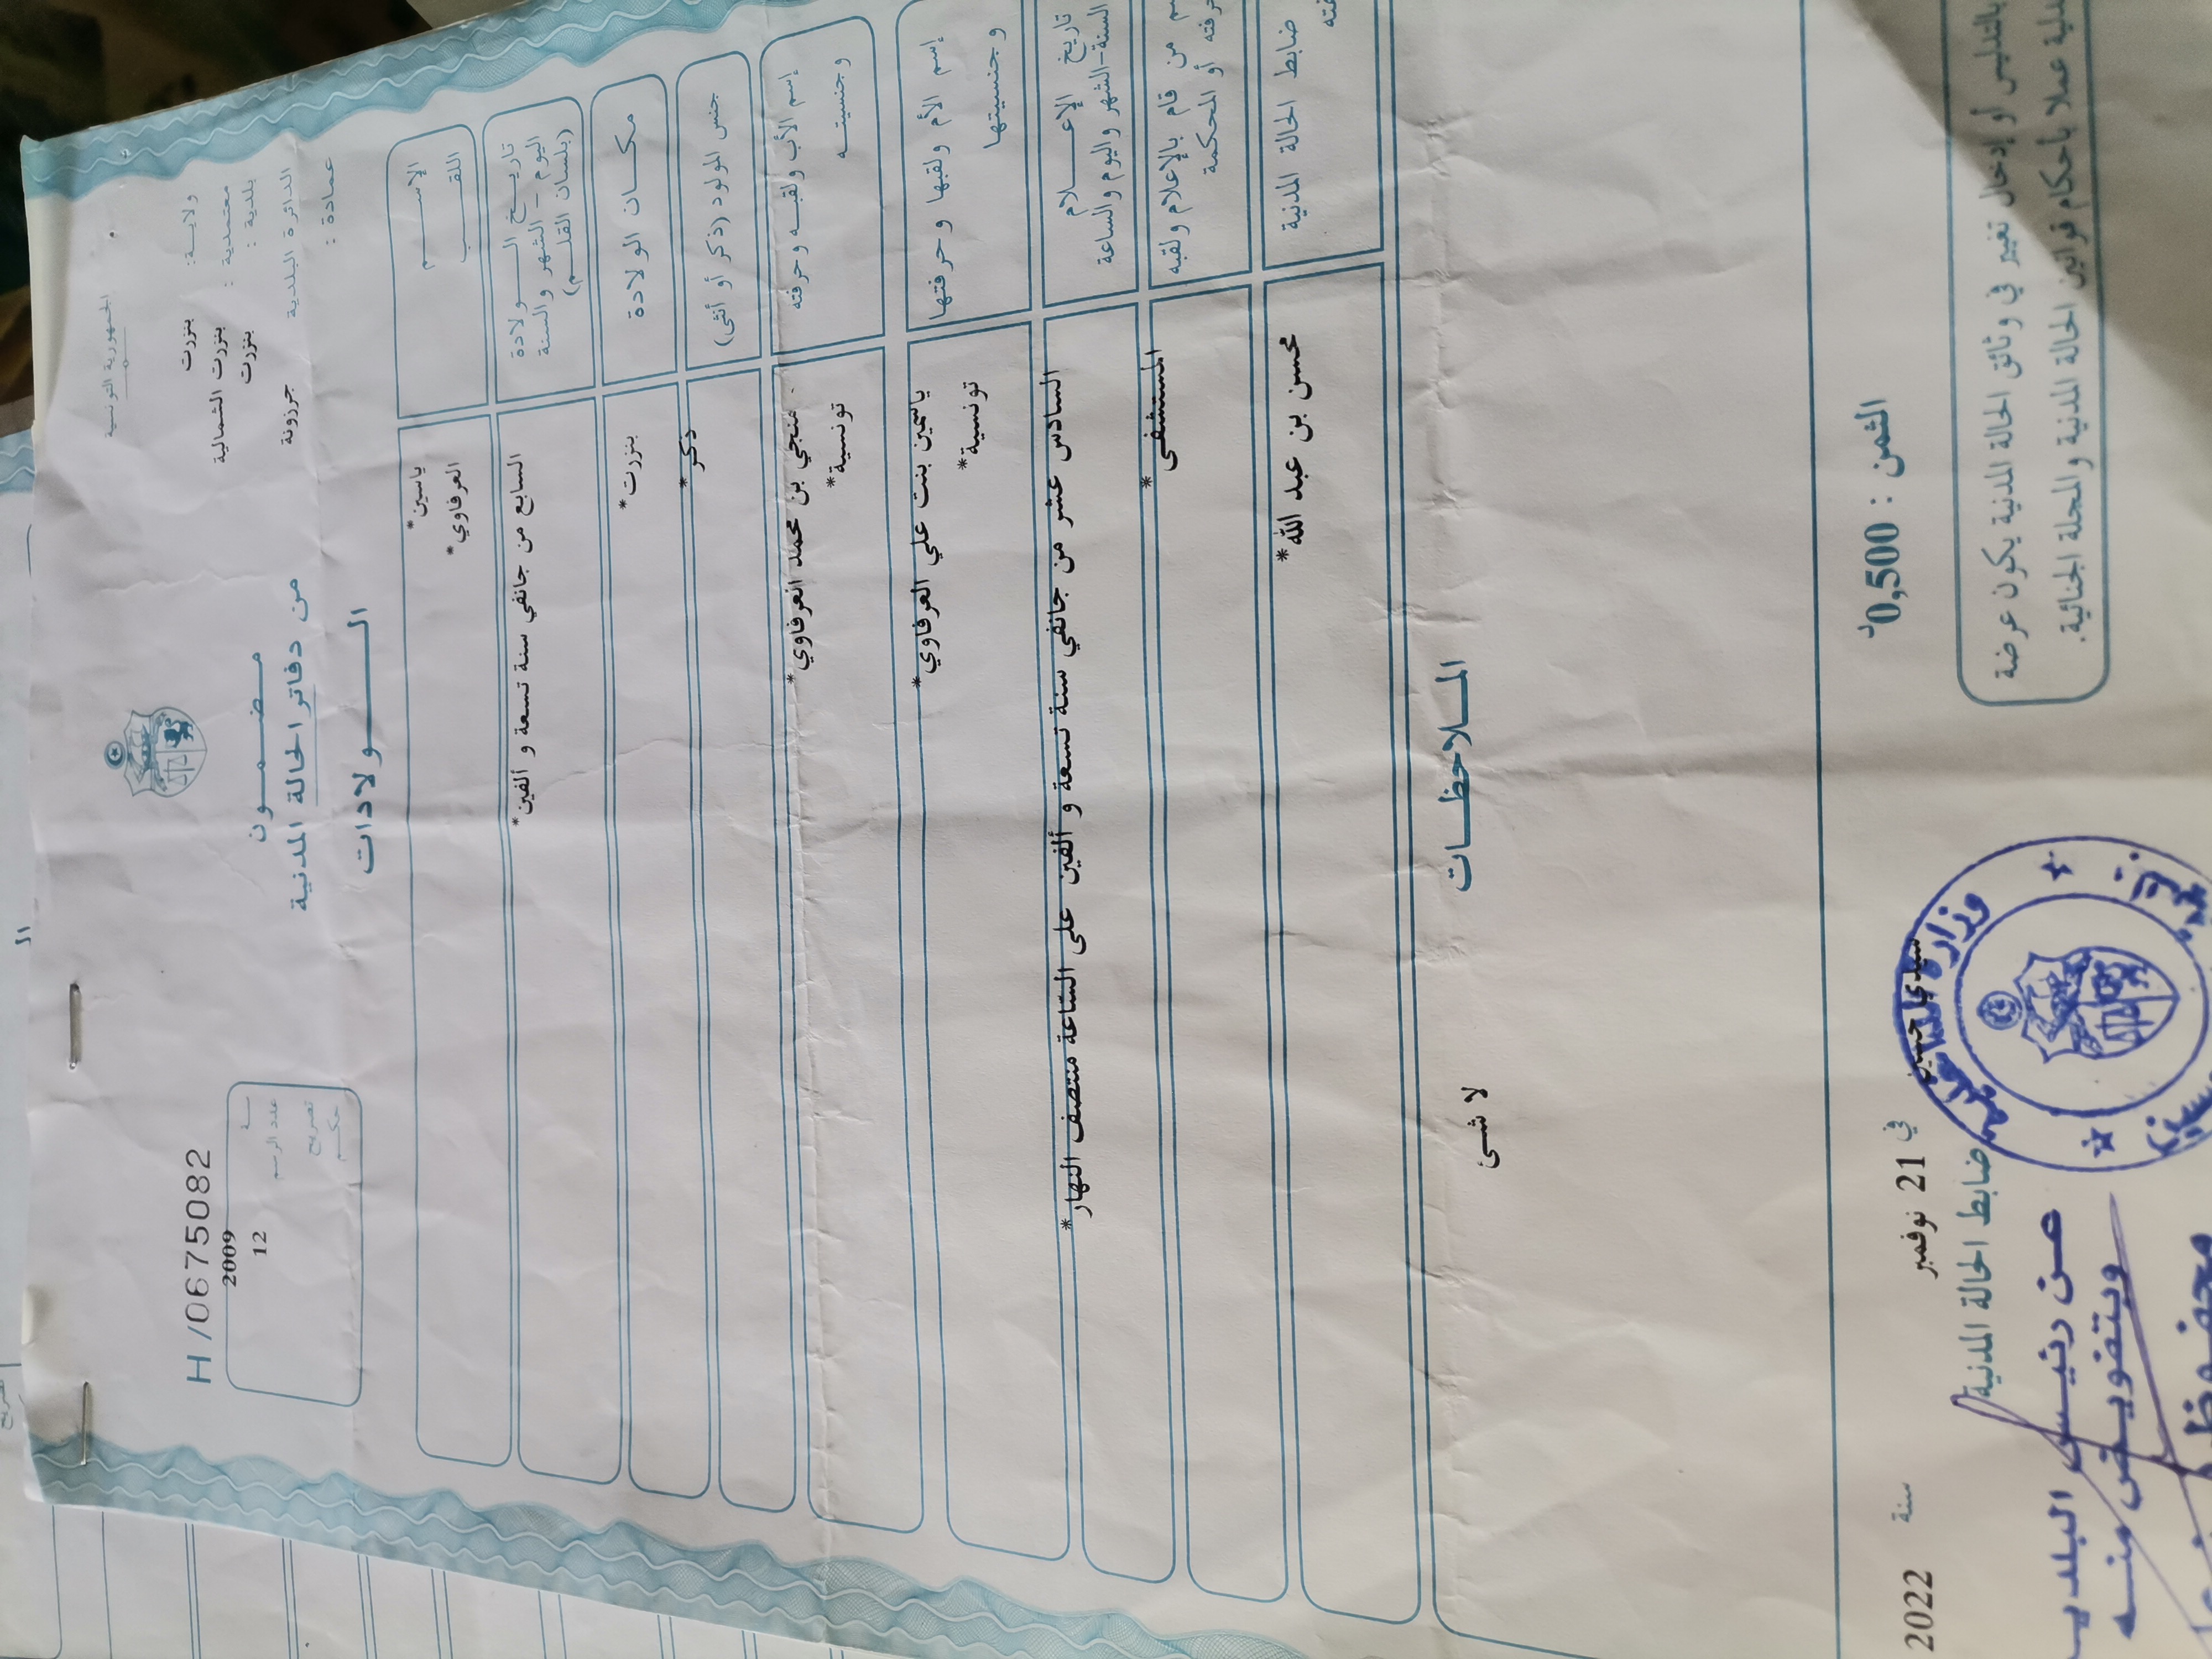 الجمهورية التونسية
ولايـــة: بنزرت
معتمدية : بنزرت الشمالية
بلدية : بنزرت
الدائرة البلدية جرزونة
عمادة :
مـــضـــمـــون
من دفاتر الحالة المدنية
الـــــولادات
H /0675082
سنـة 2009
عدد الرسم 12
تصريح
حكـــم
الإســـــم *ياسين
اللقـــب *العرفاوي
تاريـــخ الـــــولادة
اليوم _ الشهر والسنة
(بلسان القلـــم)
*السابع من جانفي سنة تسعة و الفين
مكـــان الولادة *بنزرت
جنس المولود (ذكر أو أنثى) *ذكر
إسم الأب ولقبـه وحرفته
وجنسيتـــه
*منجي بن محمد العرفاوي
*تونسية
إسم الأم ولقبها وحرفتها
وجنسيتها
*ياسمين بنت علي العرفاوي
*تونسية
تاريخ الإعـــــلام
السنة-الشهر واليوم والساعة
*السادس عشر من جانفي سنة تسعة و ألفين على الساعة منتصف النهار
من قام بالإعلام ولقبه
أو المحكمة
*المستشفى
ضابط الحالة المدنية
*محسن بن عبد الله
المـــلاحظـــات
لا شئ
الثمن : 0,500د
سيدي حسين في 21 نوفمبر سنة 2022
ضابط الحالة المدنية
عن رئيس البلدية
وبتفويض منه
محفوظ
بالتدليس أو إدخال تغيير في وثائق الحالة المدنية يكون عرضة
عملا بأحكام قوانين الحالة المدنية والمجلة الجنائية.
وزارة الداخلية